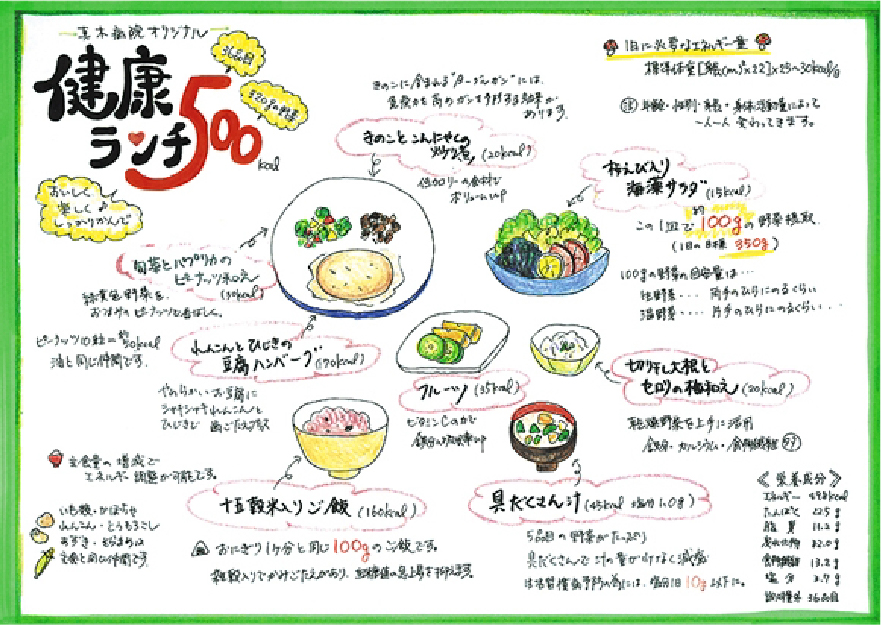 真木病院オリジナル
健康
ランチ500kcal
36品目
おいしく
楽しく♪
しっかりかんで
きのこに含まれる"β-グルカン"には、
免疫力を高めガンを予防する効果が
あります。
きのことこんにゃくの
炒り煮 (20kcal)
低カロリーの食材で
ボリュームup
1日に必要なエネルギー量
標準体重[身長(m)²×22]×25~30kcal/g
㊟ 年齢・性別・身長・身体活動量によって
一人一人変わってきます。
桜えび入り
海藻サラダ (15kcal)
この1皿で約100gの野菜摂取
(1日の目標 350g)
100gの野菜の目安量は…
生野菜・・・両手のひらにのるくらい
温野菜・・・片手のひらにのるくらい・・・
旬菜とパプリカの
ピーナッツ和え
(50kcal)
緑黄色野菜を、
おつけてピーナッツで香ばしく。
油と同じ仲間です。
れんこんとひじきの
豆腐ハンバーグ (170kcal)
やわらかいお豆腐に
シャキシャキれんこんと
ひじきで 歯ごたえup
フルーツ (35kcal)
ビタミンCの力で
鉄分の吸収率up
切り干し大根と
セロリの梅和え (20kcal)
乾燥野菜を上手に活用
鉄分・カルシウム・食物繊維
主食量の増減で
エネルギー調整が可能です。
いも類・かぼちゃ
れんこん・とうもろこし
主食と同じ仲間です
十五穀米入りご飯 (160kcal)
おにぎり1ケ分と同じ100gのご飯です。
雑穀入りでかみごたえがあり、血糖値の急上昇を抑えます。
具だくさん汁 (45kcal 塩分1.0g)
5品目の野菜がたっぷり
具だくさんで汁の量が少なく減塩
生活習慣病予防の為には、塩分1日10g以下に。
《栄養成分》
エネルギー 498kcal
たんぱく 22.5g
脂質 11.2g
炭水化物 82.0g
食物繊維 13.2g
塩分 2.7g
36品目